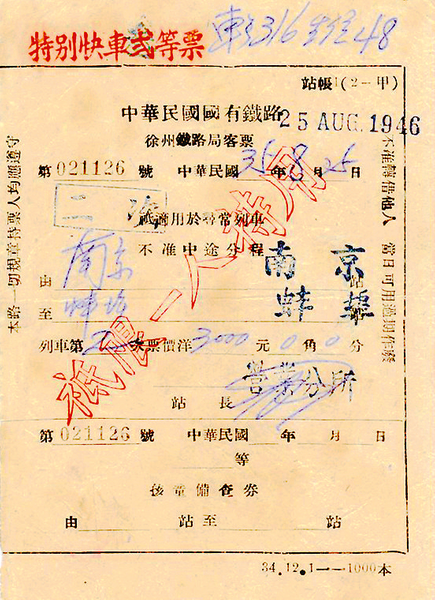 特別快車貳等票
316
48
站帳1(2—甲)
中華民國國有鐵路
25 AUG. 1946
徐州鐵路局客票
第021126號 中華民國35年8月25日
二 等
祇適用於尋常列車
不准中途分程
祇限一人持用
由 南京 南京 站
至 蚌埠 蚌埠 站
列車第2次票價洋3000元0角0分
營業分所
站長
第021126號 中華民國 年 月 日
等
孩童備查券
由 站至 站
34.12.1——1000本
本路一切規章持票人均應遵守
不准轉借他人 當日可用過期作廢